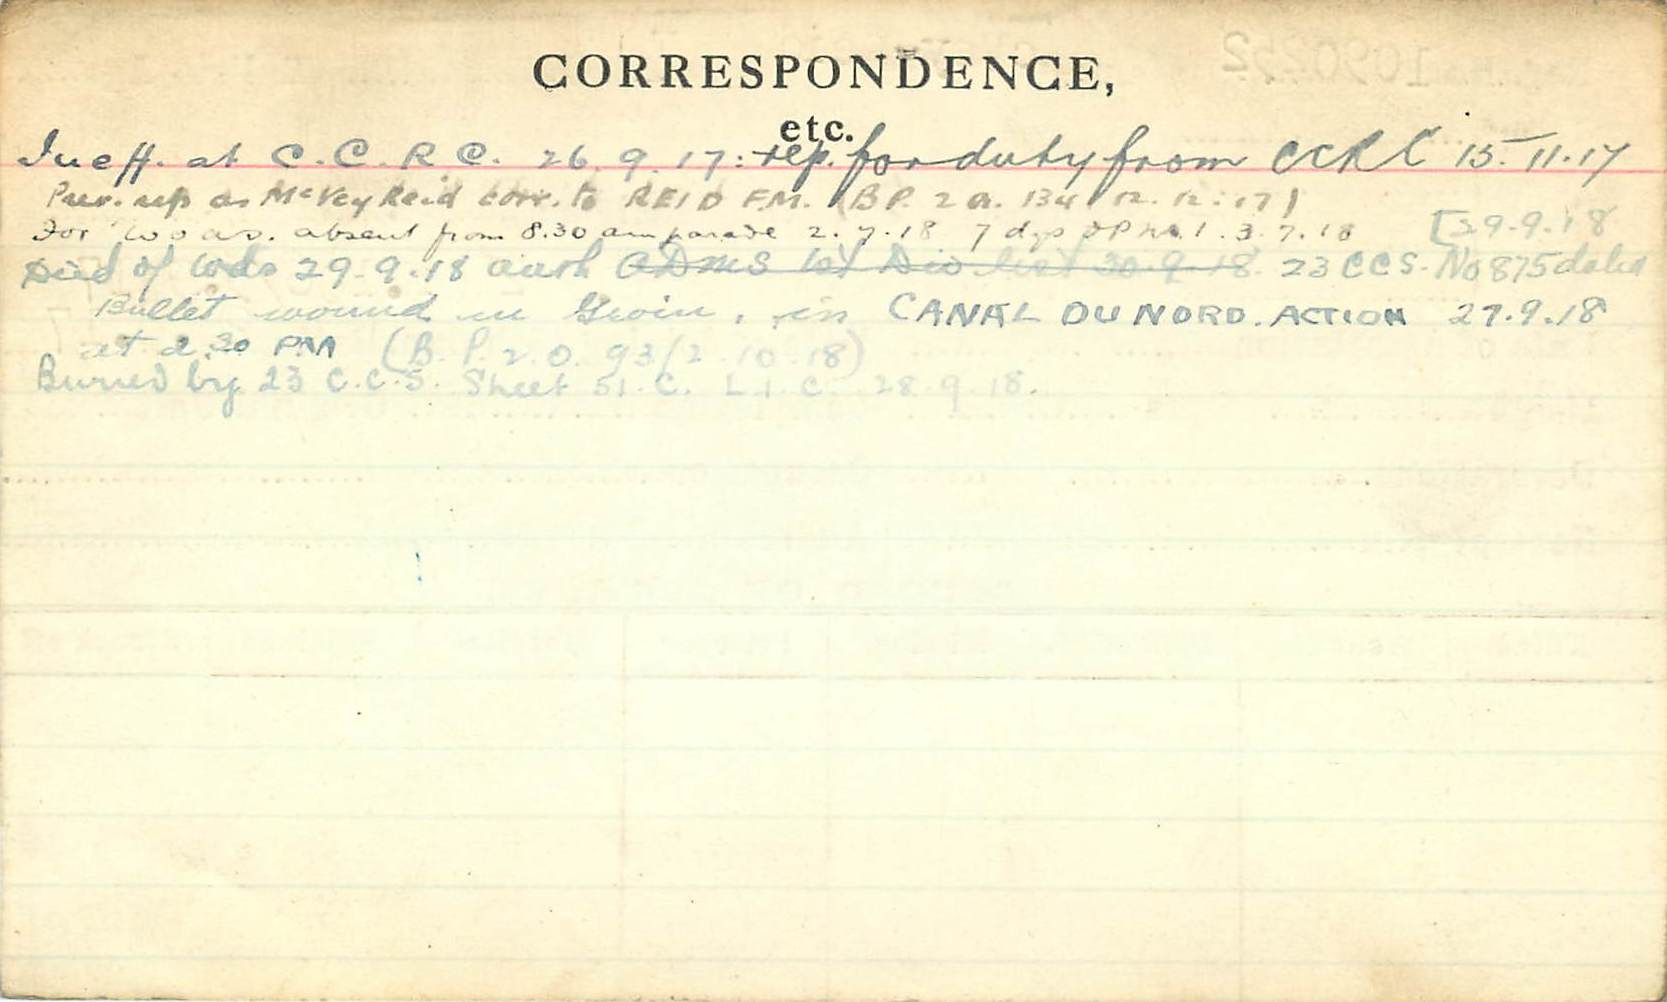 CORRESPONDENCE,
etc.
Ineff. at C.C.R.C. 26.9.17: rep. for duty from CCRC 15.11.17
Prev. rep as McVey Reid corr. to REID F.M. (B.P. 2 a. 134/12.12.17)
For WOAS. absent from 8.30 am parade 2.7.18 7 dys FP No. 1. 3.7.18 [29.9.18
Died of wds 29.9.18 auth ADMS 1st Div list 30.9.18. 23 CCS. No 875 dated
Bullet wound in Groin, in CANAL DU NORD. ACTION 27.9.18
at 2.30 PM (B.P. 2.0. 93/2.10.18)
Buried by 23 C.C.S. Sheet 51.C. L.1.C. 28.9.18.
1090252